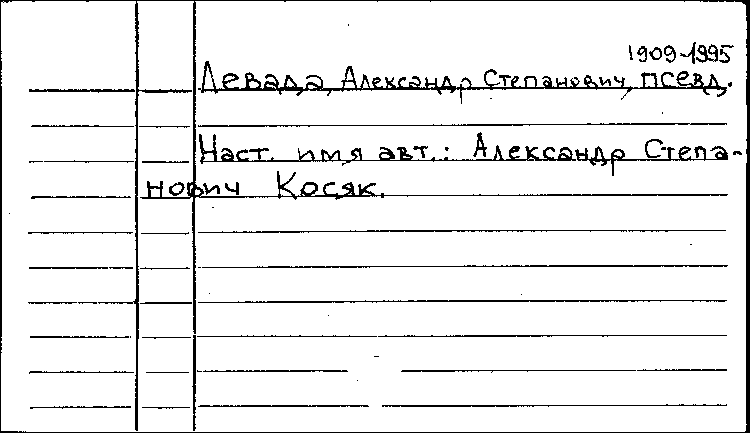 1909-1995
Левада, Александр Степанович, псевд.
Наст. имя авт.: Александр Степа-
нович Косяк.